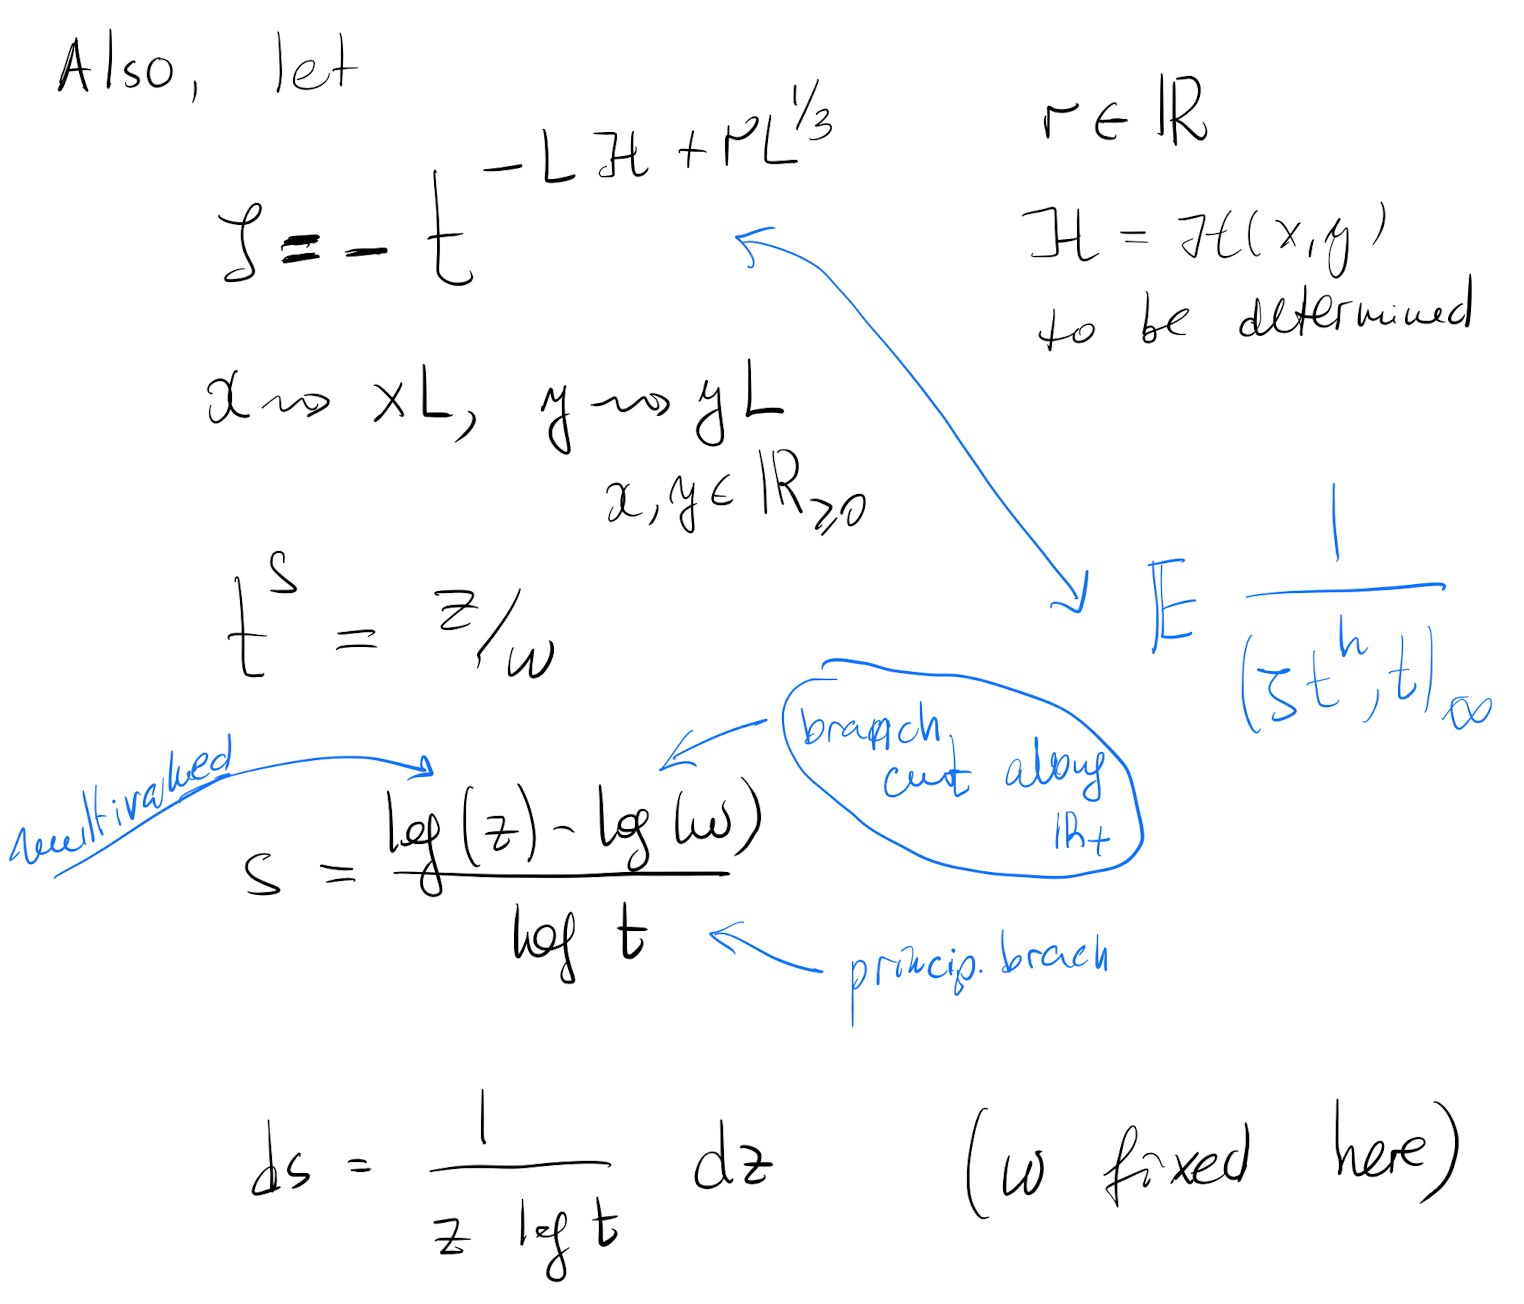 Also, let
ζ = - t^{-Lℋ + rL^{1/3}}
r ∈ ℝ
ℋ = ℋ(x,y)
to be determined
x ⇝ xL, y ⇝ yL
x, y ∈ ℝ_{≥0}
t^s = z/w
𝔼 1/(ζt^h, t)_∞
multivalued
branch
cut along
ℝ+
s = (log(z) - log(w))/log t
princip. brach
ds = 1/(z log t) dz (w fixed here)